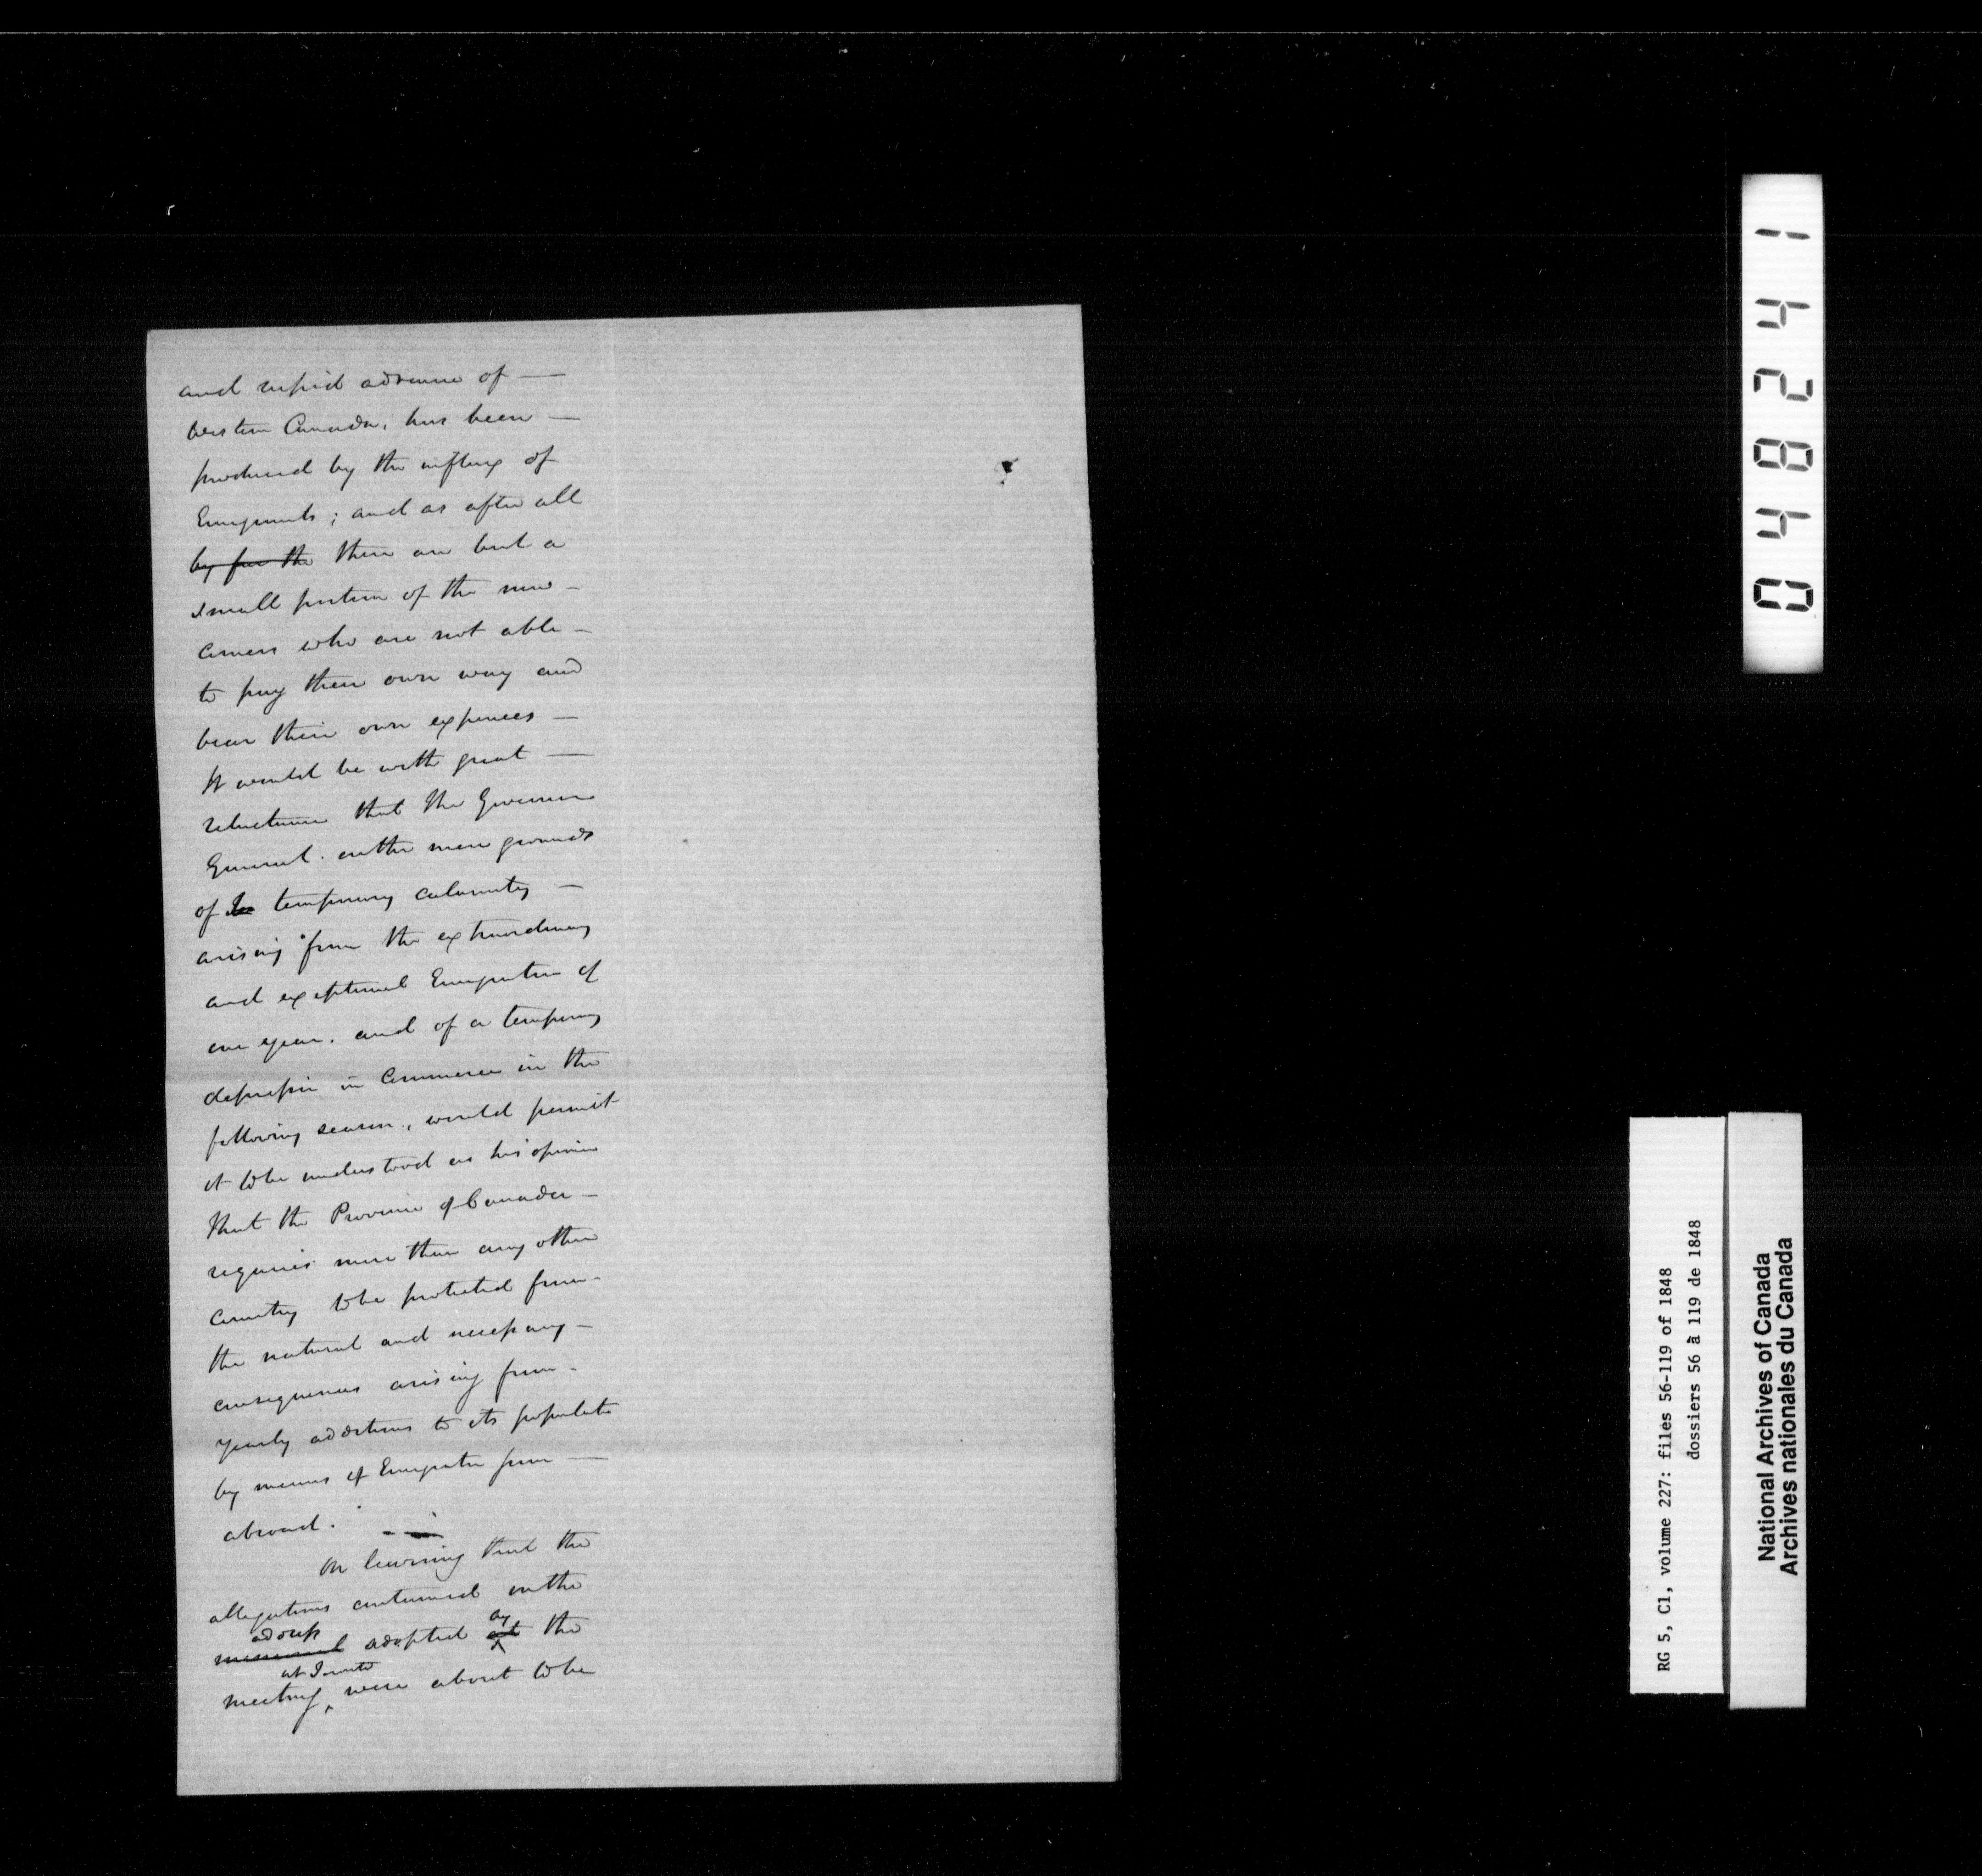 and rapid advance of —
Western Canada, has been —
produced by the influx of
Emigrants; and as after all
by far the there are but a
small portion of the new —
comers who are not able —
to pay their own way and
bear their own expenses —
It would be with great —
reluctance that the Governor
General. on the mere grounds
of temporary calamity —
arising from the extraordinary
and exceptional Emigration of
one year. and of a temporary
depression in Commerce in the
following season, would permit
it to be understood as his opinion
that the Province of Canada —
requires more than any other
Country to be protected from —
the natural and necessary —
consequences arising from —
yearly additions to its populatn
by means of Emigratn from —
abroad. —
On learning that the
allegations contained in the
address
memorial adopted by at the
at Toronto
meeting, were about to be
0 4 8 2 4 1
RG 5, C1, volume 227: files 56-119 of 1848
dossiers 56 à 119 de 1848
National Archives of Canada
Archives nationales du Canada